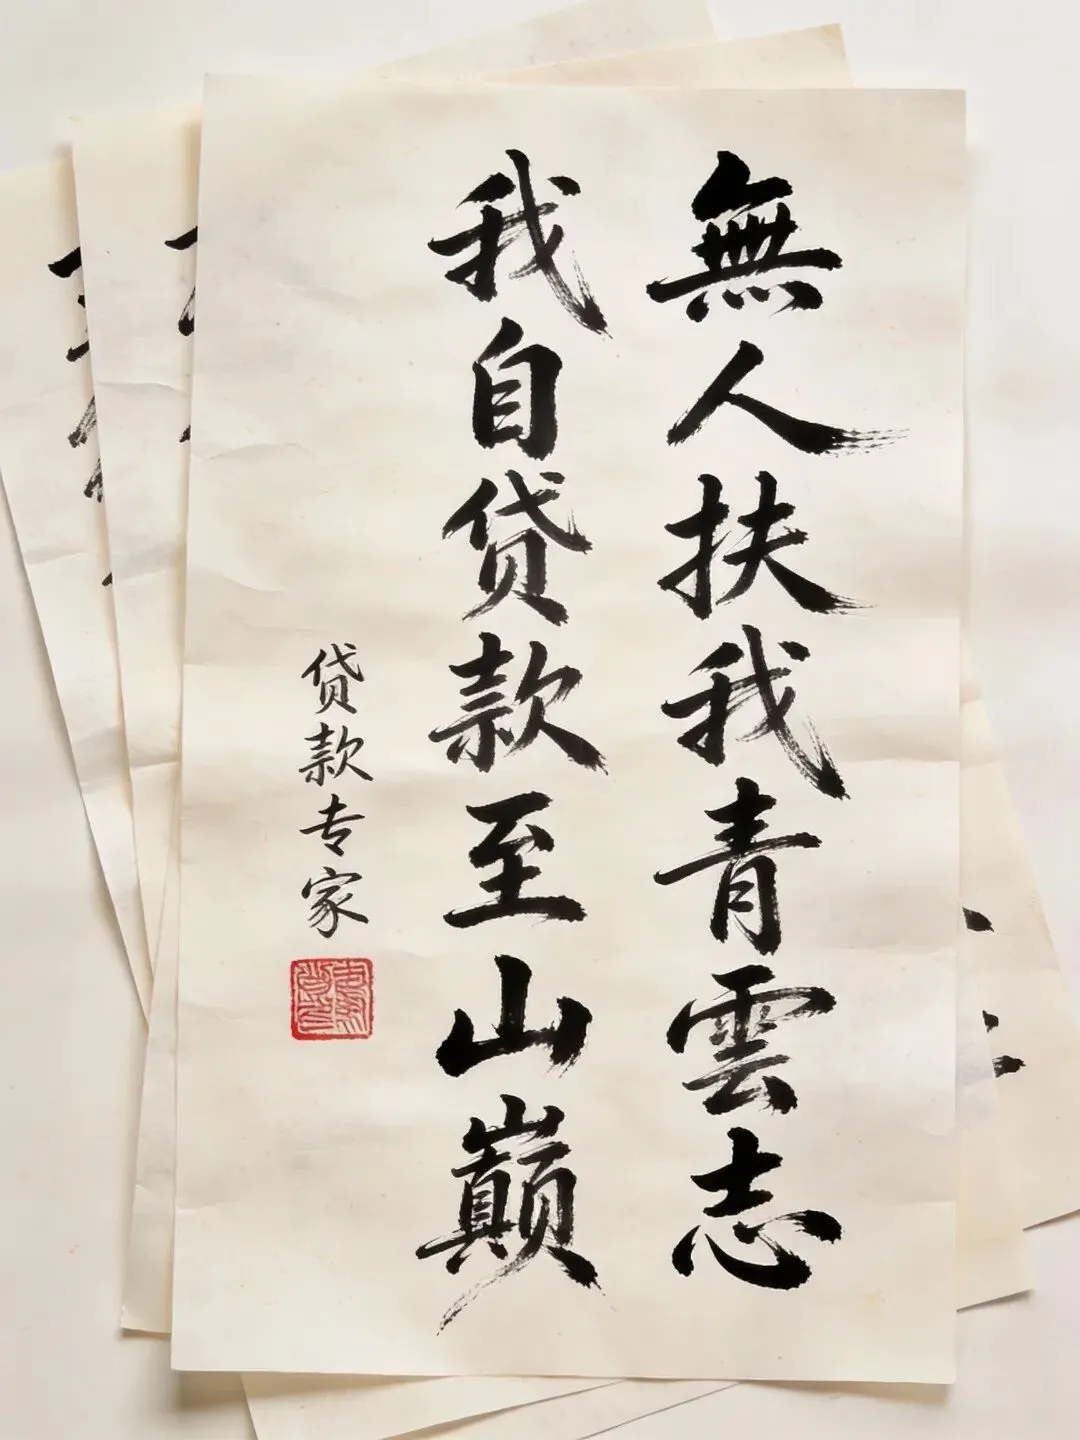 無人扶我青雲志
我自贷款至山巅
贷款专家